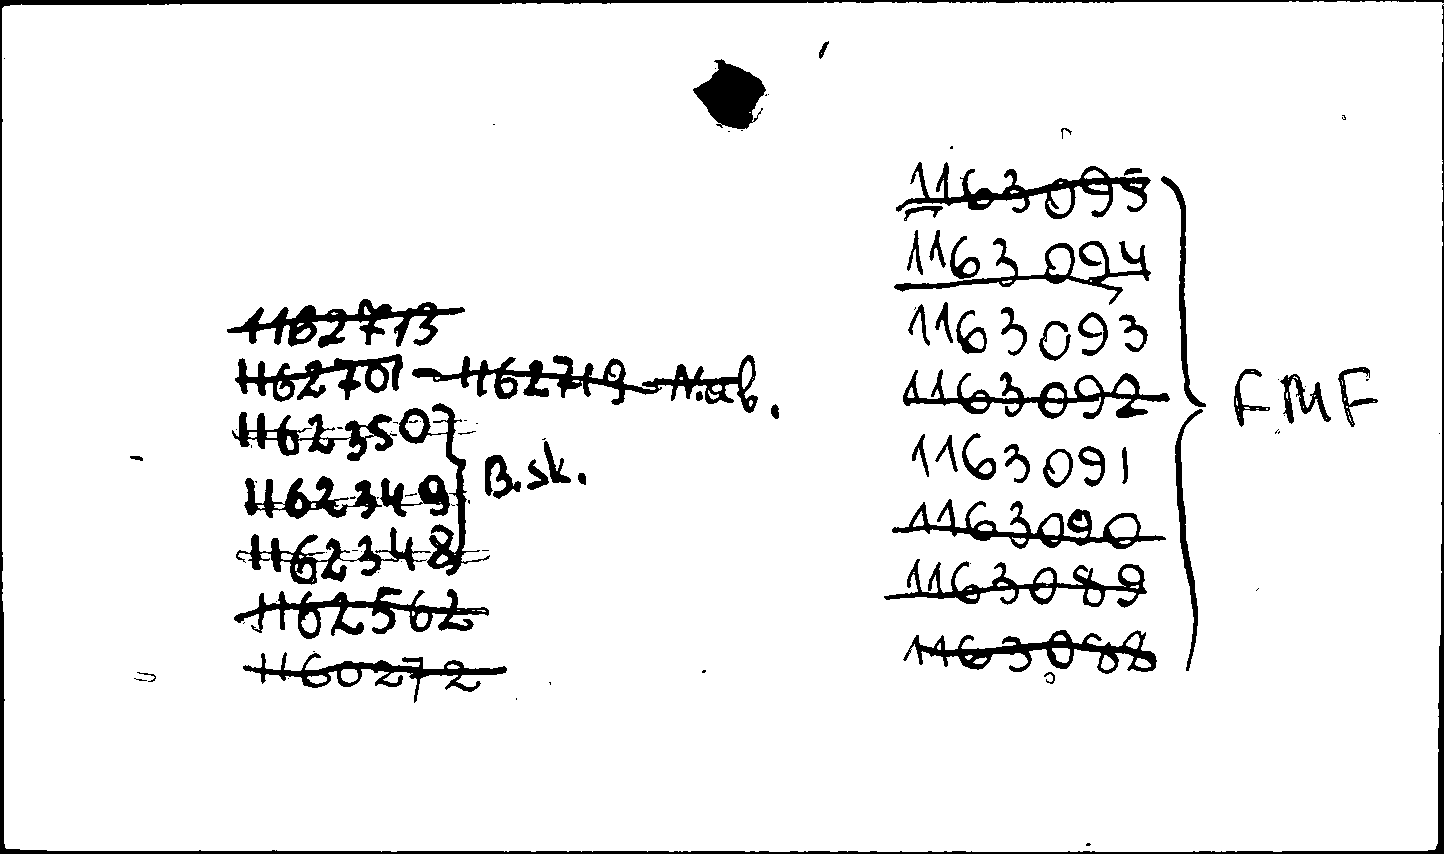 1162713
1162701 - 1162719 - N.ab.
1162350
1162349
1162348
B.sk.
1162562
1160272
1163095
1163094
1163093
1163092
1163091
1163090
1163089
1163088
FMF